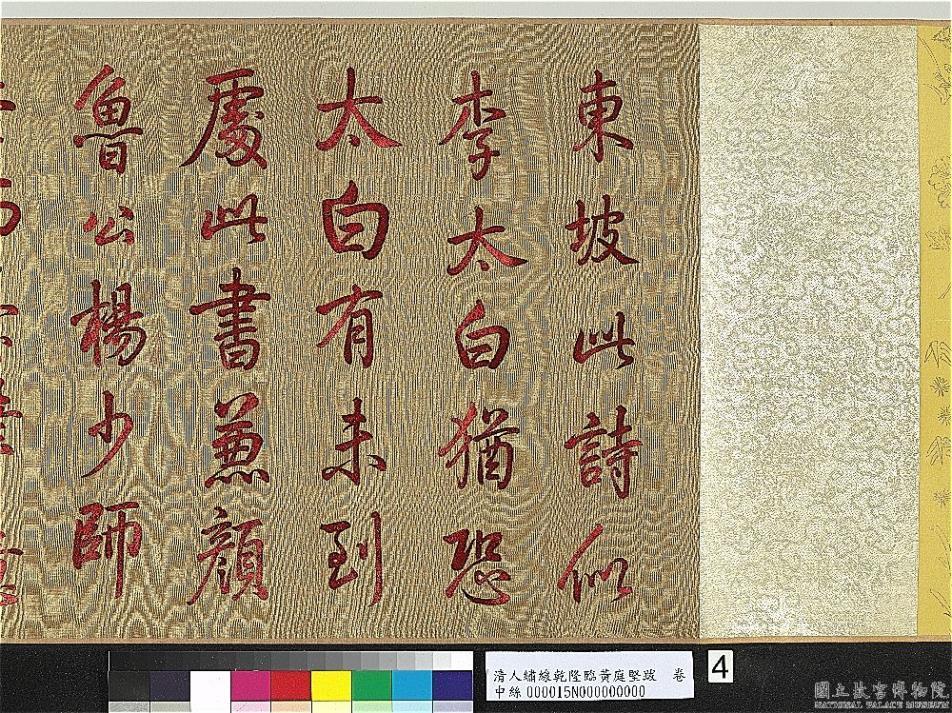 東坡此詩似
李太白猶恐
太白有未到
處此書兼顏
魯公楊少師
清人繡線乾隆臨黃庭堅跋 卷
中絲000015N000000000
4
國立故宮博物院
NATIONAL PALACE MUSEUM